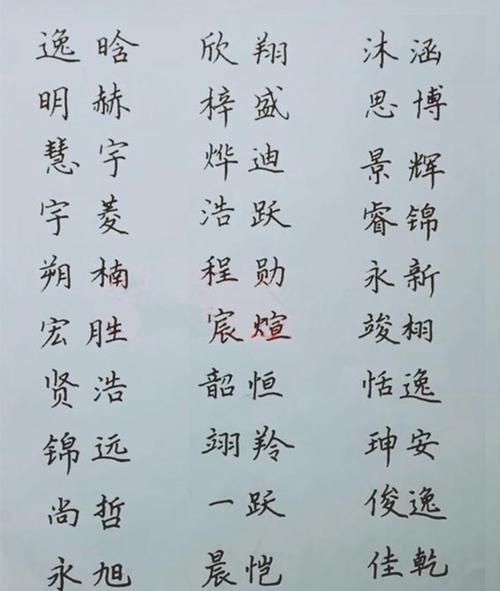 逸晗 欣翔 沐涵
明赫 梓盛 思博
慧宇 烨迪 景辉
宇菱 浩跃 睿锦
朔楠 程勋 永新
宏胜 宸煊 竣栩
贤浩 韶恒 恬逸
锦远 翊羚 珅安
尚哲 一跃 俊逸
永旭 晨恺 佳乾